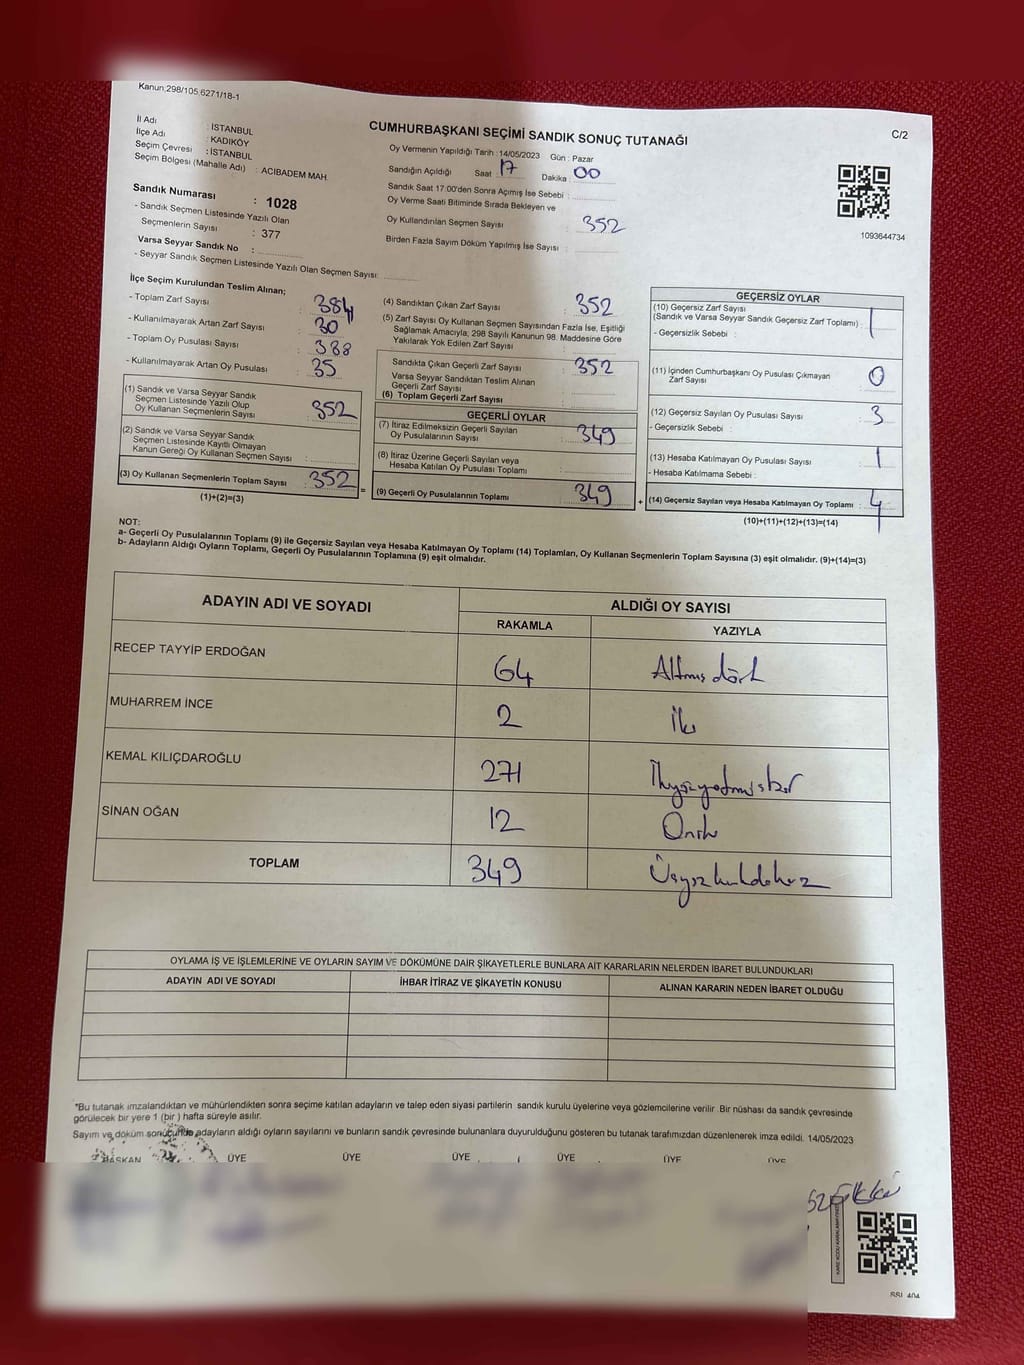 Kanun 298/105 6271/18-1
C/2
CUMHURBAŞKANI SEÇİMİ SANDIK SONUÇ TUTANAĞI
İl Adı : İSTANBUL
İlçe Adı : KADIKÖY
Seçim Çevresi : İSTANBUL
Seçim Bölgesi (Mahalle Adı) : ACIBADEM MAH.
Sandık Numarası : 1028
- Sandık Seçmen Listesinde Yazılı Olan
Seçmenlerin Sayısı : 377
Varsa Seyyar Sandık No :
- Seyyar Sandık Seçmen Listesinde Yazılı Olan Seçmen Sayısı:
Oy Vermenin Yapıldığı Tarih : 14/05/2023 Gün : Pazar
Sandığın Açıldığı Saat 17 Dakika : 00
Sandık Saat 17:00'den Sonra Açımış İse Sebebi :
Oy Verme Saati Bitiminde Sırada Bekleyen ve
Oy Kullandırılan Seçmen Sayısı : 352
Birden Fazla Sayım Döküm Yapılmış İse Sayısı :
1093644734
İlçe Seçim Kurulundan Teslim Alınan;
- Toplam Zarf Sayısı : 384
- Kullanılmayarak Artan Zarf Sayısı : 30
- Toplam Oy Pusulası Sayısı : 388
- Kullanılmayarak Artan Oy Pusulası : 35
(1) Sandık ve Varsa Seyyar Sandık
Seçmen Listesinde Yazılı Olup
Oy Kullanan Seçmenlerin Sayısı : 352
(2) Sandık ve Varsa Seyyar Sandık
Seçmen Listesinde Kayıtlı Olmayan
Kanun Gereği Oy Kullanan Seçmen Sayısı :
(3) Oy Kullanan Seçmenlerin Toplam Sayısı : 352
(1)+(2)=(3)
=
(4) Sandıktan Çıkan Zarf Sayısı : 352
(5) Zarf Sayısı Oy Kullanan Seçmen Sayısından Fazla İse, Eşitliği
Sağlamak Amacıyla, 298 Sayılı Kanunun 98. Maddesine Göre
Yakılarak Yok Edilen Zarf Sayısı :
Sandıkta Çıkan Geçerli Zarf Sayısı : 352
Varsa Seyyar Sandıktan Teslim Alınan
Geçerli Zarf Sayısı :
(6) Toplam Geçerli Zarf Sayısı :
GEÇERLİ OYLAR
(7) İtiraz Edilmeksizin Geçerli Sayılan
Oy Pusulalarının Sayısı : 349
(8) İtiraz Üzerine Geçerli Sayılan veya
Hesaba Katılan Oy Pusulası Toplamı :
(9) Geçerli Oy Pusulalarının Toplamı : 349
+
GEÇERSİZ OYLAR
(10) Geçersiz Zarf Sayısı
(Sandık ve Varsa Seyyar Sandık Geçersiz Zarf Toplamı) :
- Geçersizlik Sebebi :
(11) İçinden Cumhurbaşkanı Oy Pusulası Çıkmayan
Zarf Sayısı : 0
(12) Geçersiz Sayılan Oy Pusulası Sayısı : 3
- Geçersizlik Sebebi :
(13) Hesaba Katılmayan Oy Pusulası Sayısı : 1
- Hesaba Katılmama Sebebi :
(14) Geçersiz Sayılan veya Hesaba Katılmayan Oy Toplamı : 4
(10)+(11)+(12)+(13)=(14)
NOT:
a- Geçerli Oy Pusulalarının Toplamı (9) ile Geçersiz Sayılan veya Hesaba Katılmayan Oy Toplamı (14) Toplamları, Oy Kullanan Seçmenlerin Toplam Sayısına (3) eşit olmalıdır. (9)+(14)=(3)
b- Adayların Aldığı Oyların Toplamı, Geçerli Oy Pusulalarının Toplamına (9) eşit olmalıdır.
ADAYIN ADI VE SOYADI
ALDIĞI OY SAYISI
RAKAMLA YAZIYLA
RECEP TAYYİP ERDOĞAN 64 Altmış dört
MUHARREM İNCE 2 İki
KEMAL KILIÇDAROĞLU 271 İkiyüzyetmişbir
SİNAN OĞAN 12 Oniki
TOPLAM 349 Üçyüzkırkdokuz
OYLAMA İŞ VE İŞLEMLERİNE VE OYLARIN SAYIM VE DÖKÜMÜNE DAİR ŞİKAYETLERLE BUNLARA AİT KARARLARIN NELERDEN İBARET BULUNDUKLARI
ADAYIN ADI VE SOYADI İHBAR İTİRAZ VE ŞİKAYETİN KONUSU ALINAN KARARIN NEDEN İBARET OLDUĞU
*Bu tutanak imzalandıktan ve mühürlendikten sonra seçime katılan adayların ve talep eden siyasi partilerin sandık kurulu üyelerine veya gözlemcilerine verilir. Bir nüshası da sandık çevresinde
görülecek bir yere 1 (bir ) hafta süreyle asılır.
Sayım ve döküm sonucunda adayların aldığı oyların sayılarını ve bunların sandık çevresinde bulunanlara duyurulduğunu gösteren bu tutanak tarafımızdan düzenlenerek imza edildi. 14/05/2023
BAŞKAN ÜYE ÜYE ÜYE ÜYE ÜYE ÜYE